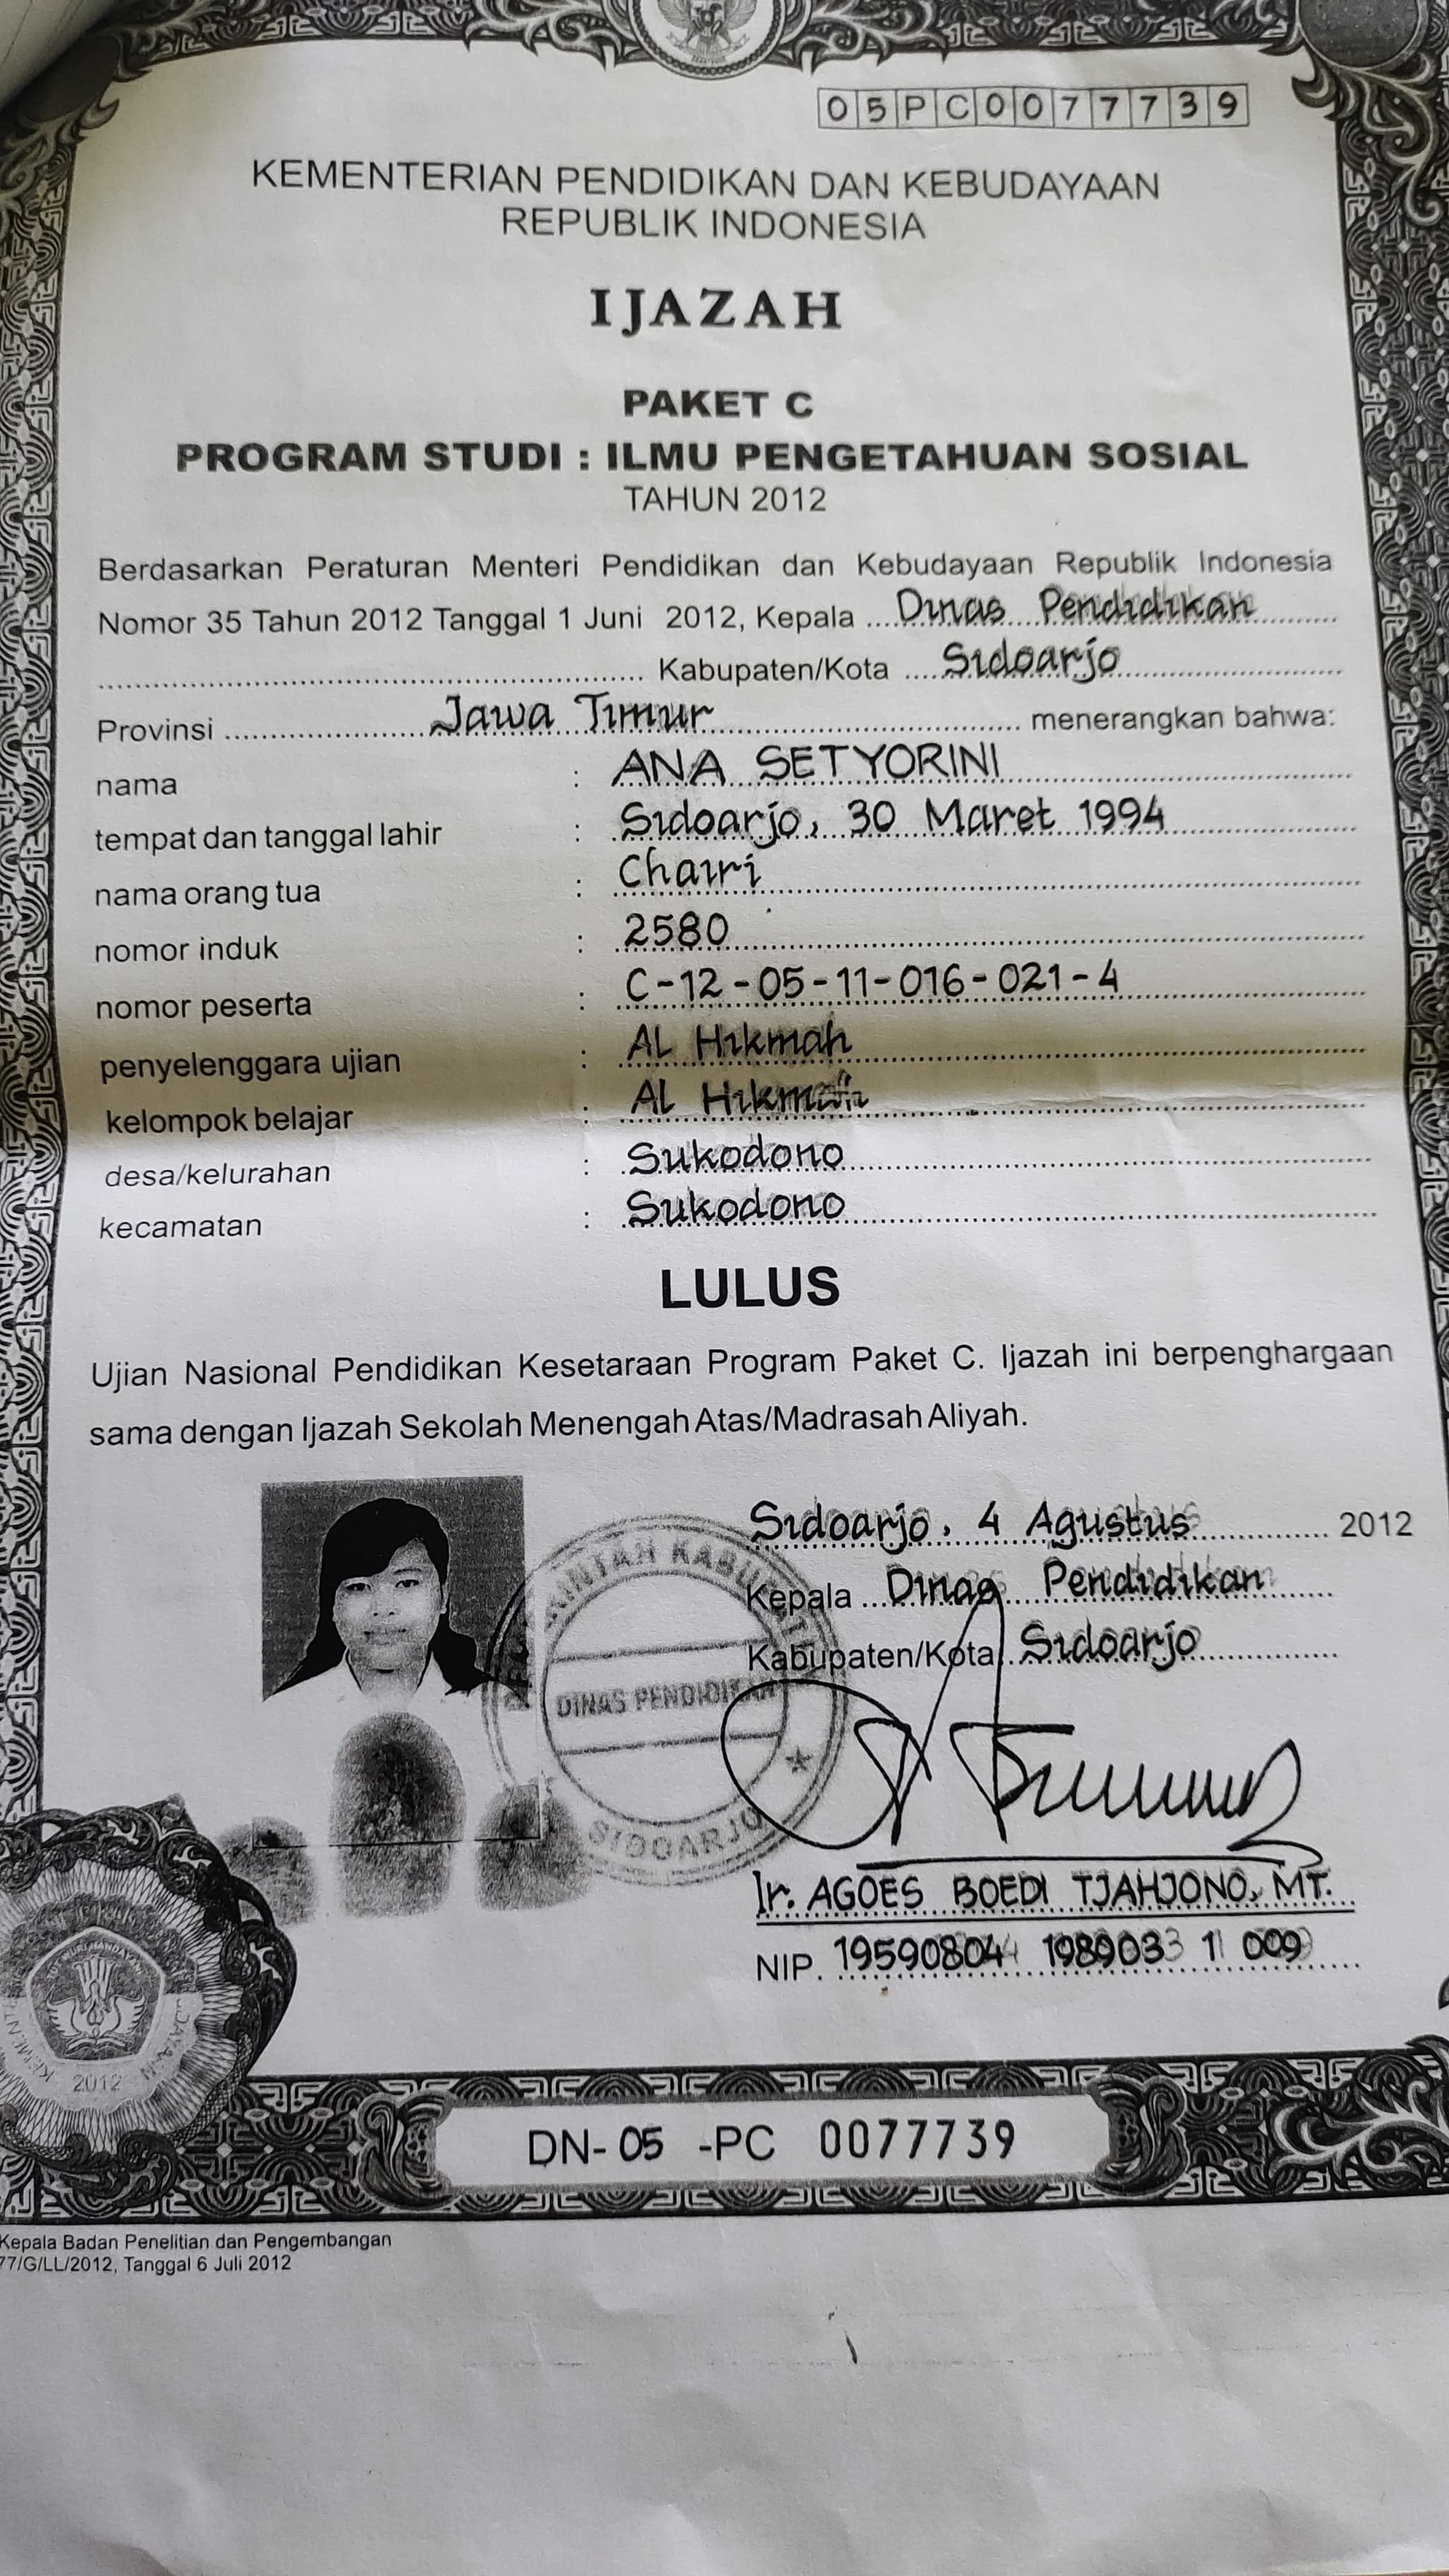 05PC0077739
KEMENTERIAN PENDIDIKAN DAN KEBUDAYAAN
REPUBLIK INDONESIA
IJAZAH
PAKET C
PROGRAM STUDI : ILMU PENGETAHUAN SOSIAL
TAHUN 2012
Berdasarkan Peraturan Menteri Pendidikan dan Kebudayaan Republik Indonesia
Nomor 35 Tahun 2012 Tanggal 1 Juni 2012, Kepala Dinas Pendidikan
Kabupaten/Kota Sidoarjo
Provinsi Jawa Timur menerangkan bahwa:
nama : ANA SETYORINI
tempat dan tanggal lahir : Sidoarjo, 30 Maret 1994
nama orang tua : Chairi
nomor induk : 2580
nomor peserta : C-12-05-11-016-021-4
penyelenggara ujian : AL Hikmah
kelompok belajar : Al Hikmah
desa/kelurahan : Sukodono
kecamatan : Sukodono
LULUS
Ujian Nasional Pendidikan Kesetaraan Program Paket C. Ijazah ini berpenghargaan
sama dengan Ijazah Sekolah Menengah Atas/Madrasah Aliyah.
Sidoarjo, 4 Agustus 2012
Kepala Dinas Pendidikan
Kabupaten/Kota Sidoarjo
DINAS PENDIDIKAN
SIDOARJO
Ir. AGOES BOEDI TJAHJONO, MT.
NIP. 19590804 198903 1 009
2012
DN-05 -PC 0077739
Kepala Badan Penelitian dan Pengembangan
77/G/LL/2012, Tanggal 6 Juli 2012